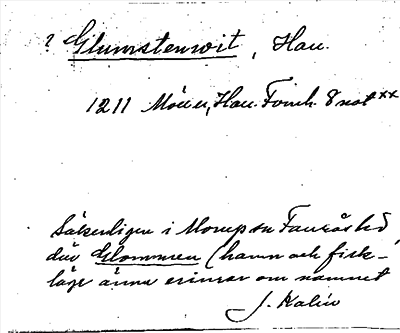 ? Glumstenwit, Hall.
1211 Möller, Hall. Fornh. 8 not xx
Säkerligen i Morup sn Faurås hd,
där Glommen (hamn och fisk-
läge ännu erinrar om namnet
J. Kalén